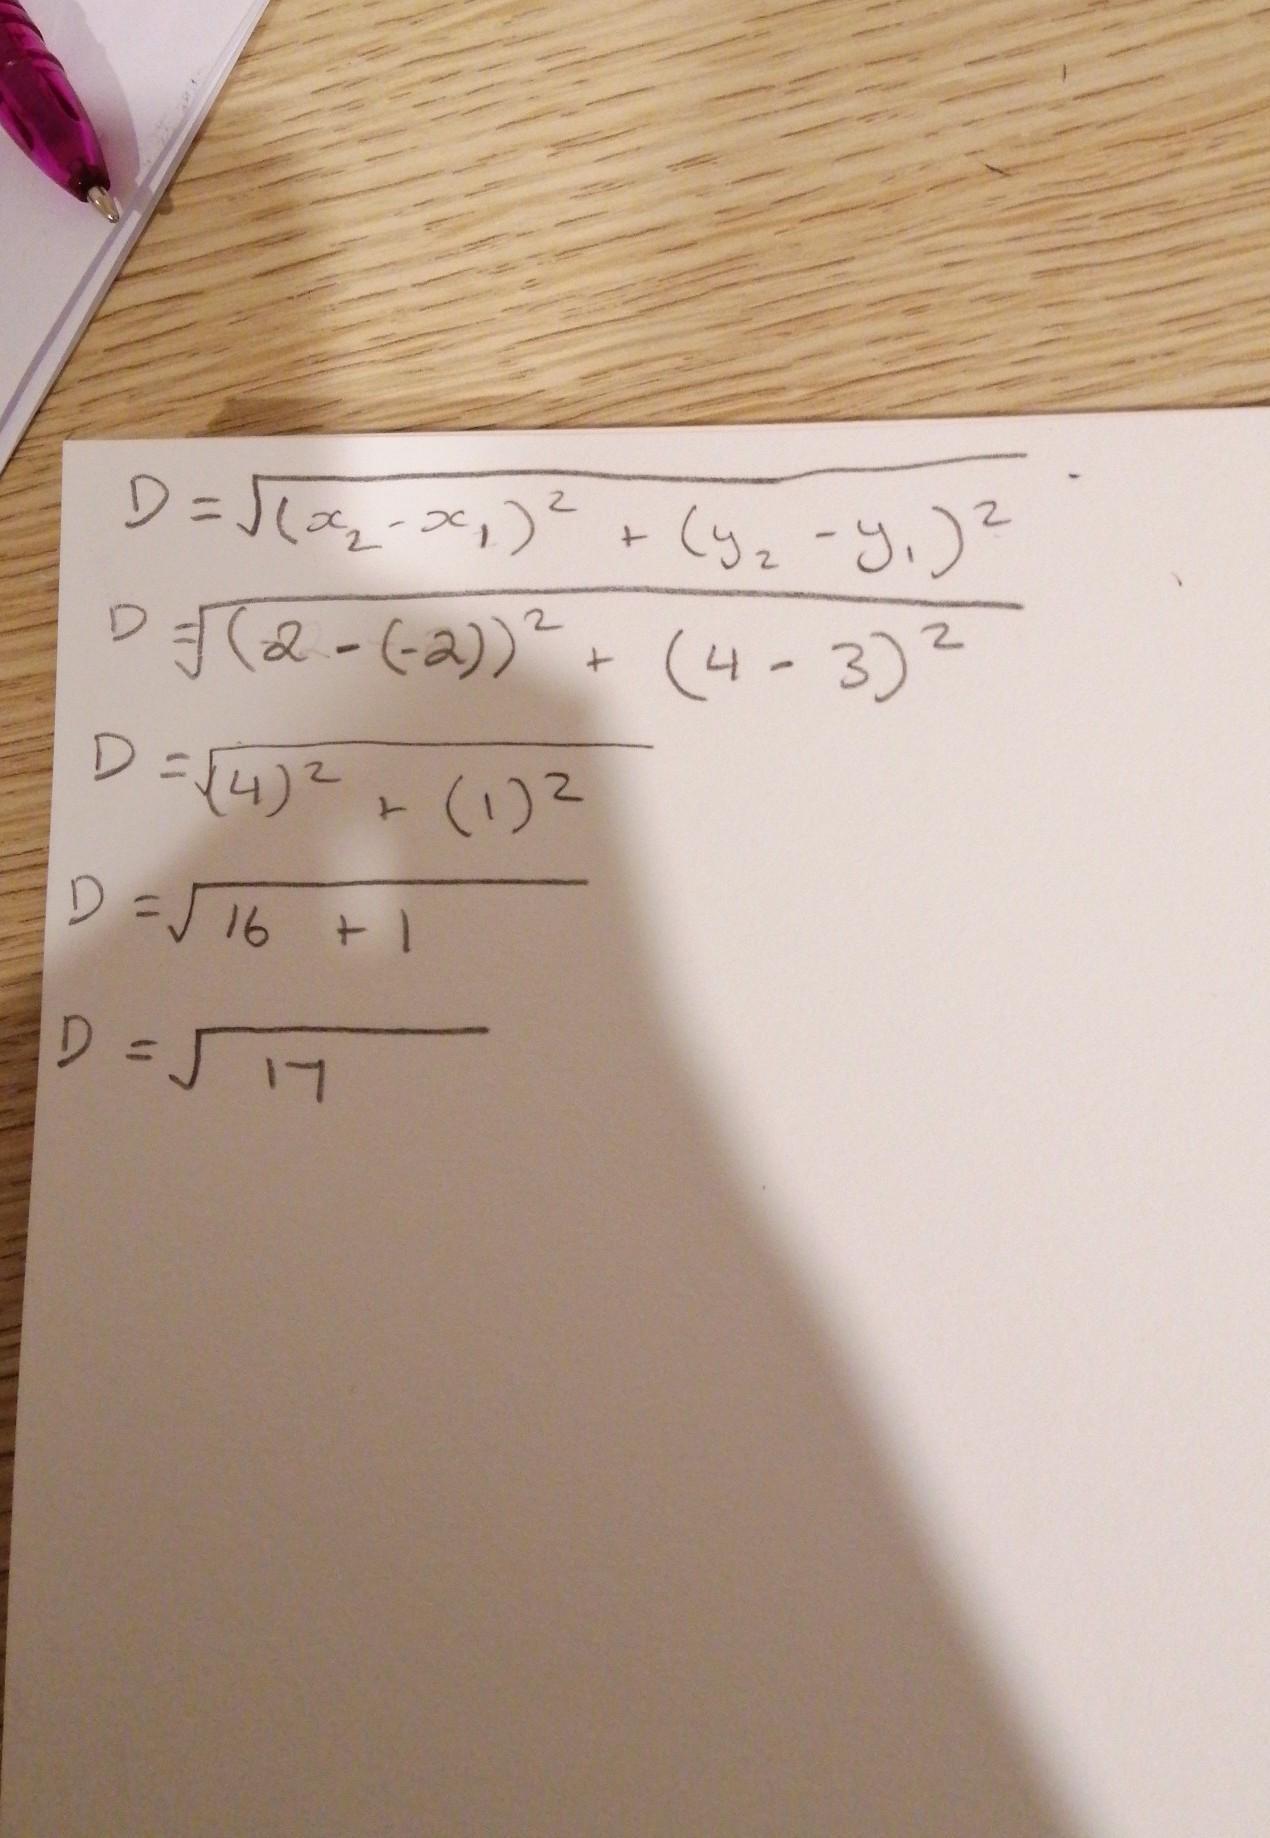 D = √(x₂ - x₁)² + (y₂ - y₁)²
D = √(2 - (-2))² + (4 - 3)²
D = √(4)² + (1)²
D = √16 + 1
D = √17